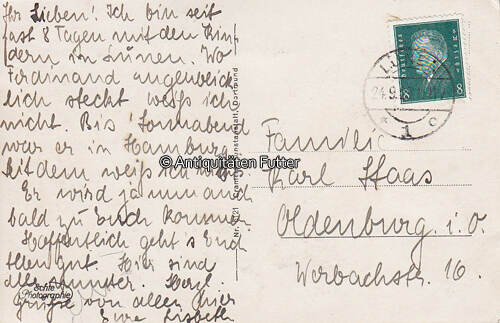 Ihr Lieben! Ich bin seit
fast 8 Tagen mit den Kin
dern in Lünen. Wo
Ferdinand augenblick
lich steckt weiß ich
nicht. Bis Sonnabend
war er in Hamburg
seitdem weiß ich nichts
Er wird ja niemand
bald zu Euch kommen
Hoffentlich geht's Euch
allen gut. Hier sind
alle munter. Herzl.
Grüße von allen hier
Eure Lisbeth
Echte
Photographie
Dortmund
Deutsches Reich
8
8
24.9.
* 1 c
© Antiquitäten Futter
Familie
Karl Haas
Oldenburg i. O.
Werbachstr. 16.